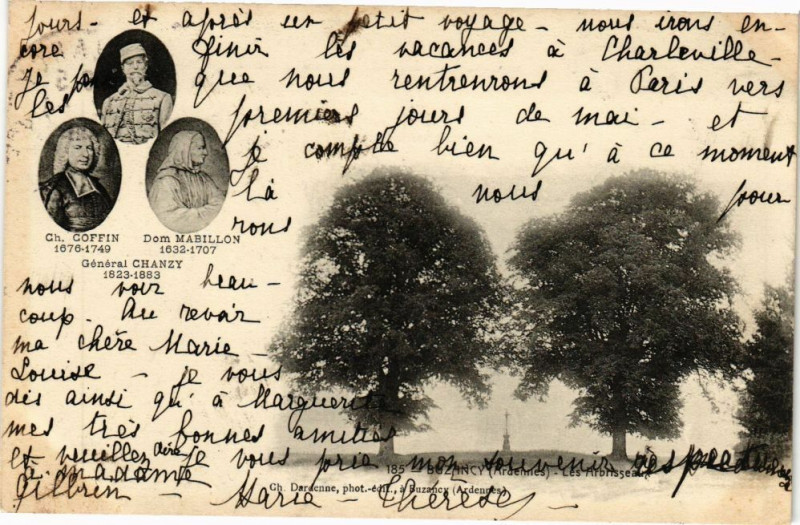 jours - et après un petit voyage - nous irons en-
core finir les vacances à Charleville -
Je que nous rentrerons à Paris vers
les premiers jours de mai - et
je compte bien qu'à ce moment
là nous pour
rons
Ch. COFFIN
1676-1749
Dom MABILLON
1632-1707
Général CHANZY
1823-1883
nous voir beau-
coup. Au revoir
ma chère Marie -
Louise - je vous
dis ainsi qu'à Marguerite
mes très bonnes amitiés
et veuillez dire je vous prie mon souvenir respectueux
à madame
Gilbrin - Marie-Thérèse -
185 - BUZANCY (Ardennes) - Les Arbrisseaux
Ch. Dardenne, phot.-édit., à Buzancy (Ardennes)